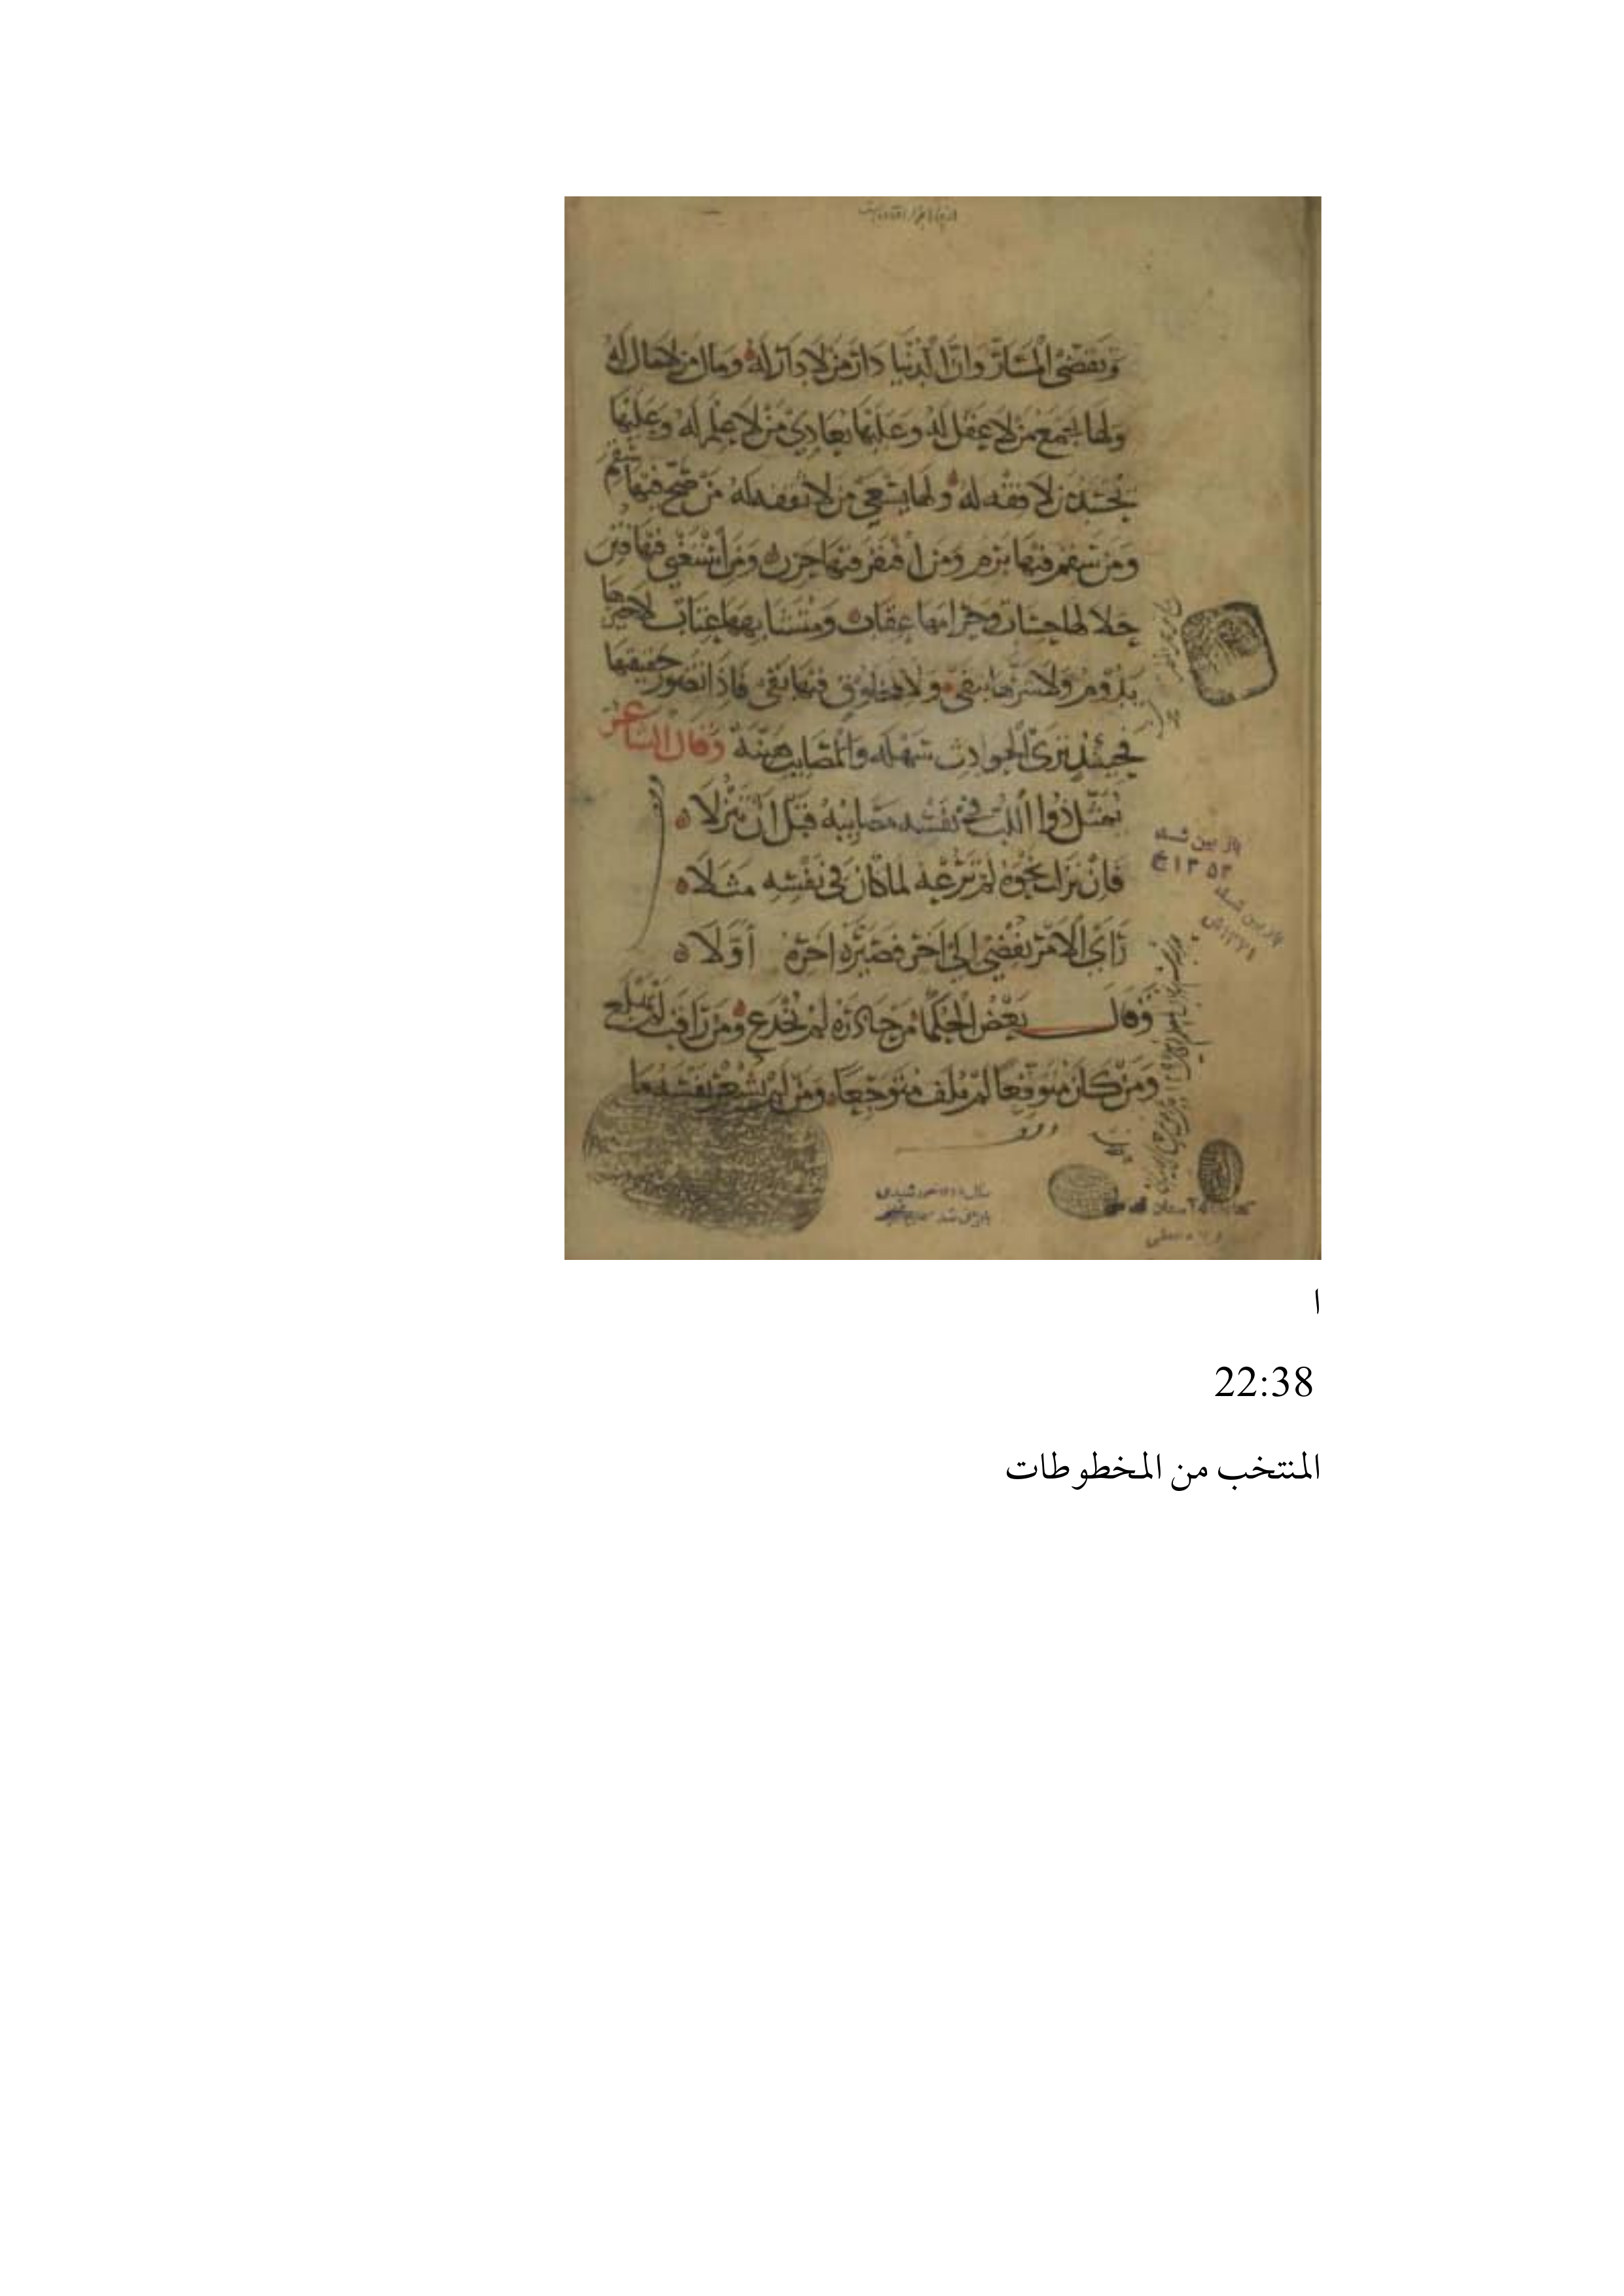 وتقضي المسار وان الدنيا دار من لا دار له ومال من لا مال له
ولها يجمع من لا عقل له وعليها يعادي من لا علم له وعليها
يحسد من لا فقه له ولها يسعى من لا ثقة له من صح فيها سقم
ومن سقم فيها برم ومن افتقر فيها حزن ومن استغنى فيها فتن
حلالها حساب وحرامها عقاب ومتشابهها عتاب لا خيرها
يدوم ولا شرها يبقى ولا لمخلوق فيها بقى فاذا تصور حقيقتها
فحينئذ يرى الحوادث سهلة والمصايب هينة وقال الشاعر
يمثل ذوا اللب في نفسه مصايبه قبل ان تنزلا
فان نزلت لم ترعه لما كان في نفسه مثلا
راى الامر يفضي الى اخر فصير اخره أولا
وقال بعض الحكما من حاذر لم يخدع ومن راقب لم يهلع
ومن كان متوقعا لم يلف متوجعا ومن لم يشعر نفسه ما
باز بين شد
۱۳۵۳
باز بين شد
ا
22:38
المنتخب من المخطوطات